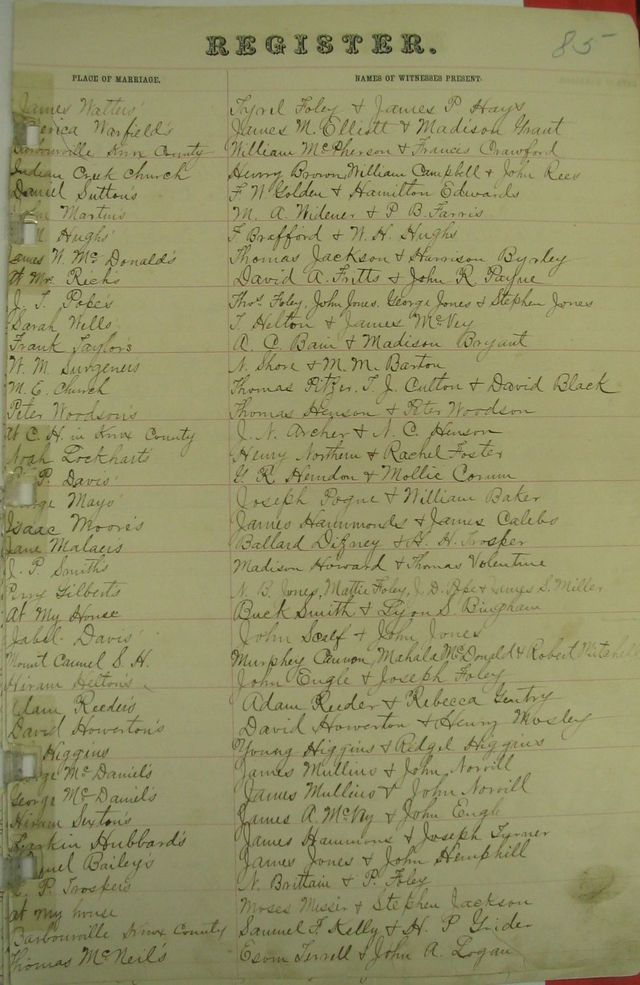 REGISTER.
85
PLACE OF MARRIAGE. NAMES OF WITNESSES PRESENT.
James Watters' Tyrel Foley & James P Hays
Warfield's James M. Elliott & Madison Grant
Barbourville Knox County William McPherson & Francis Crawford
Indian Creek Church Henry Brown, William Campbell & John Rees
Daniel Sutton's F W Golden & Hamilton Edwards
John Martins M. A. Widener & P B. Farris
Hughs' F Brafford & W. H. Hughs
James W. McDonald's Thomas Jackson & Harrison Byrley
At Mr Rich's David A. Fritts & John R. Payne
J. T. Popes Thos. Foley, John Jones, George Jones & Stephen Jones
Sarah Wells' T Helton & James McVey
Frank Taylor's A. C. Bain & Madison Bryant
W. M. Surgeners N. Shore & M. M. Barton
M. E. Church Thomas Pitzer, T. J. Culton & David Black
Peter Woodson's Thomas Henson & Peter Woodson
At C. H. in Knox County J. N. Archer & N. C. Henson
Noah Lockharts Henry Northern & Rachel Foster
P. Davis' G. R. Herndon & Mollie Corum
George Mays' Joseph Pogue & William Baker
Isaac Moore's James Hammonds & James Calebs
Jane Ballard Dizney & H. H. Trosper
J. P. Smiths Madison Howard & Thomas Valentine
Perry Gilberts N. B. Jones, Mattie Foley, J. D. Pope & James S. Miller
At My House Buck Smith & Lyon S Bingham
Davis' John Scalf & John Jones
Mount Carmel S. H. Murphey Cannon, Mahala McDonald & Robert Mitchell
Hiram Helton's John Engle & Joseph Foley
Adam Reeder's Adam Reeder & Rebecca Gentry
David Howerton's David Howerton & Henry Mosley
Higgins Young Higgins & Redgel Higgins
George McDaniel's James Mullins & John Norvill
George McDaniel's James Mullins & John Norvill
Hiram Sexton's James A. McVey & John Engle
Larkin Hubbard's James Hammons & Joseph Turner
Bailey's James Jones & John Hemphill
P. Trosper's N. Brittain & P. Foley
At my house Moses Messer & Stephen Jackson
Barbourville Knox County Samuel F. Kelly & H. P Grider
Thomas McNeil's Esom Terrell & John A. Logan